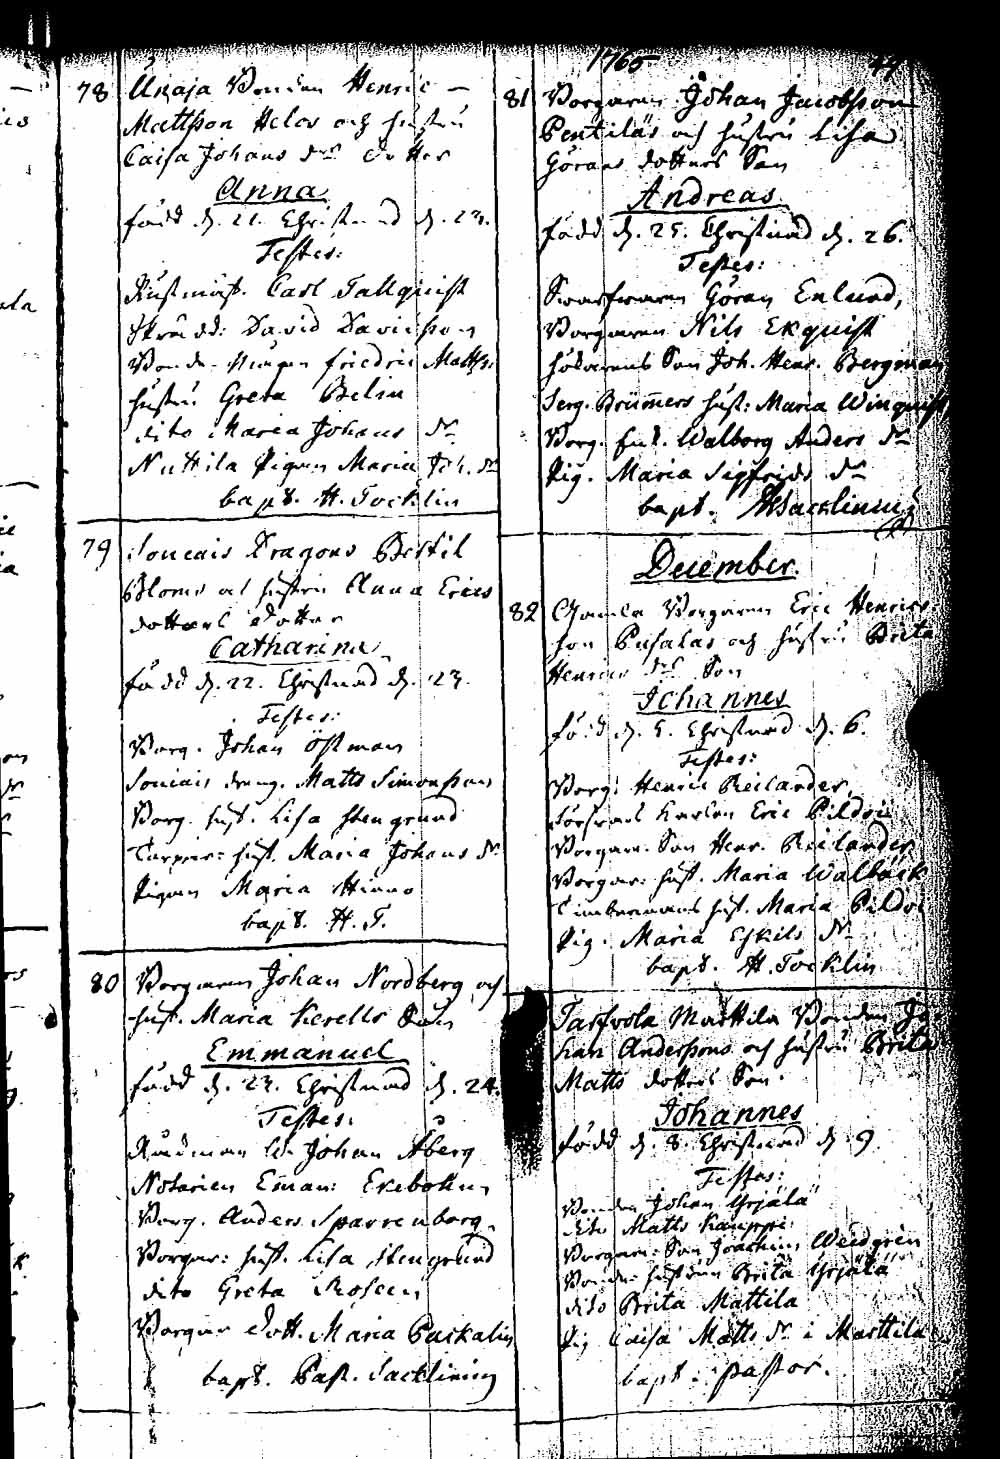 1765
78 Anaja Bonden Henric
Mattsson Helos och hustru
Caisa Johans drs dotter
Anna
född d. 21. Christnad d. 23.
Testes:
Rustmäst. Carl Tallquist
Skrädd: David Davidsson
Bonde- Friedric Matts.
hustru Greta Belin
dito Maria Johans dr
Nuttila Pigan Maria Joh. dr
bapt. H. Tocklin
79 Soucais Dragons Bertil
Bloms och hustru Anna Erics
dotters dotter
Catharina
född d. 22. Christnad d. 23.
Testes:
Borg. Johan Östman
Soucais dreng. Matts Simonsson
Borg. hust. Lisa Stengrund
hust. Maria Johans dr
Pigan Maria
bapt. H. T.
80 Borgaren Johan Nordberg och
hust. Maria Kerells Son
Emmanuel
född d. 23. Christnad d. 24.
Testes:
Rådman Johan Åberg
Notarien Eman: Ekebohm
Borg. Anders Sparrenborg
Borgar: hust. Lisa Stengrund
dito Greta Roseen
Borgar dott. Maria Packalin
bapt. Past. Sacklinius
81 Borgaren Johan Jacobsson
Pentiläs och hustru Lisa
Görans dotters Son
Andreas
född d. 25. Christnad d. 26.
Testes:
Swarfvaren Göran Enlund,
Borgaren Nils Ekquist
Son Joh. Henr. Bergman
Serg. Brümmers hust: Maria Winquist
Borg. Walborg Anders dr
Pig. Maria Sigfrids dr
bapt. Sacklinius
December.
82 Gamla Borgaren Eric Henrics
son Pusalas och hustru Brita
Henrics drs Son
Johannes
född d. 5. Christnad d. 6.
Testes:
Borg: Henric Reilander
Karlen Eric Pildri
Borgare Son Henr. Reilander
Borgar: hust. Maria Walbäck
Timbermans hust. Maria Pildri
Pig. Maria Eskils dr
bapt. H. Tocklin
Marttila Bonden Jo-
han Anderssons och hustru Brita
Matts dotters Son
Johannes
född d. 8. Christnad d. 9
Testes:
Bonden Johan Yrjälä
dito Matts Kauppi
Borgare Son Joachim Weidgrén
Bonde hustrun Brita Yrjälä
dito Brita Mattila
Pig Caisa Matts dr i Marttila
bapt. pastor.